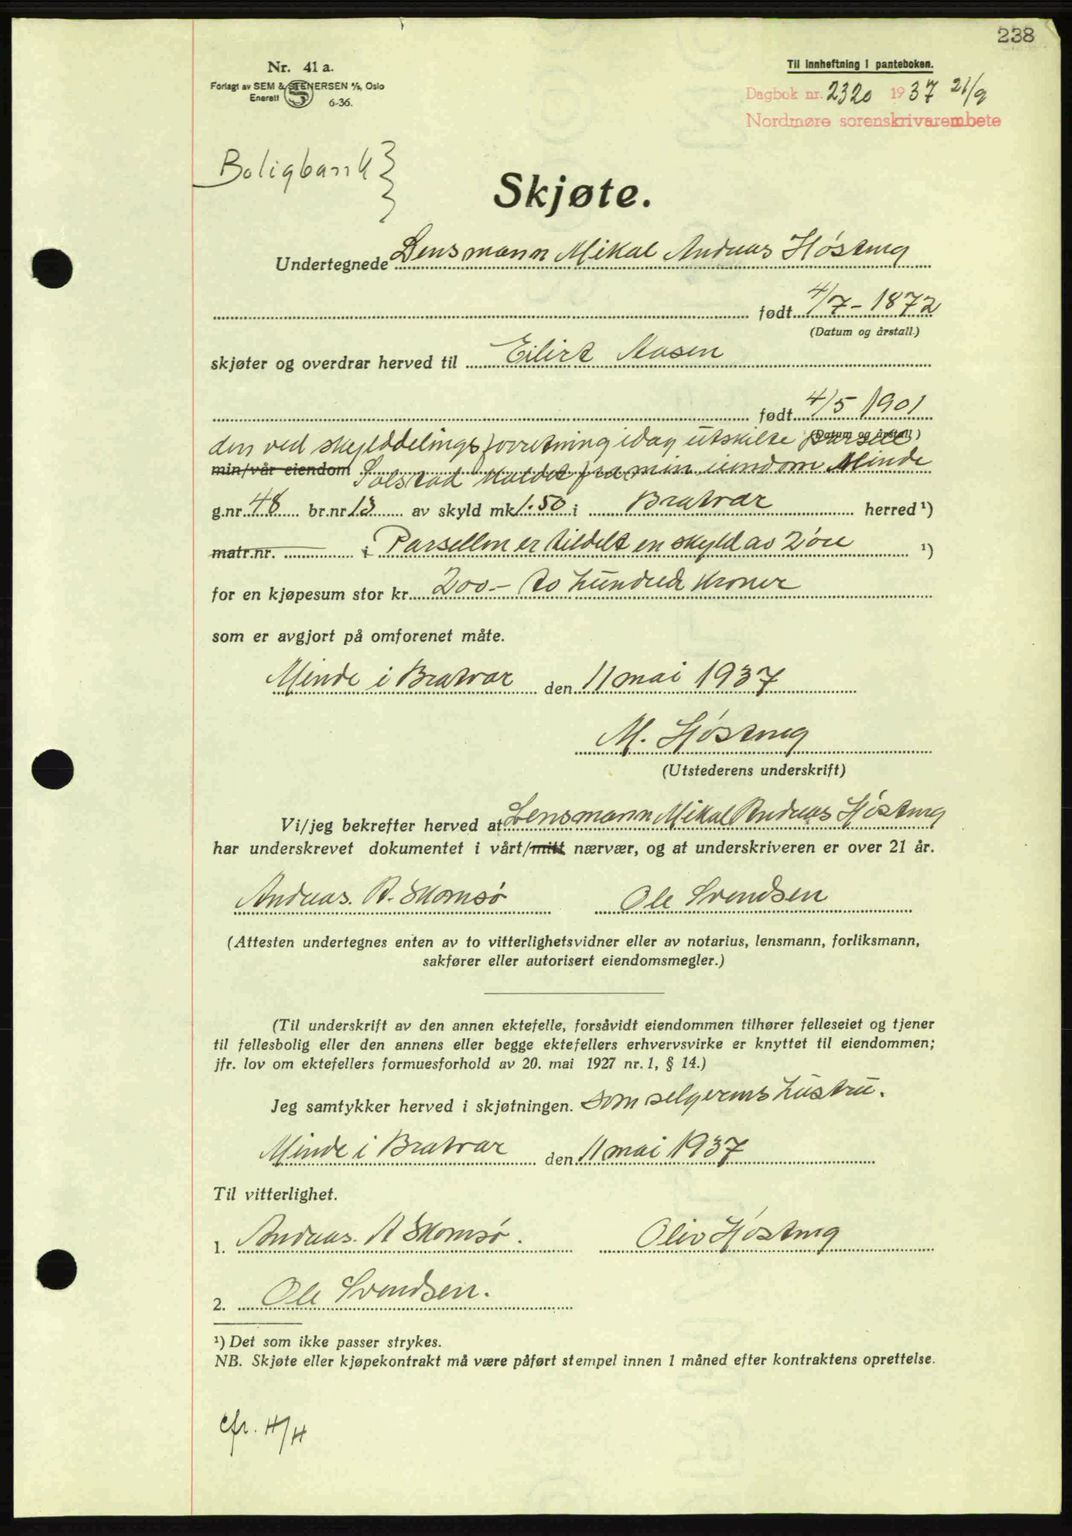 238
Nr. 41 a.
Forlagt av SEM & STENERSEN A/S, Oslo
Enerett 6-36.
Til innheftning i panteboken.
Dagbok nr. 2320 1937 21/9
Nordmøre sorenskrivarembete
Boligbank
Skjøte.
Undertegnede Lensmann Mikal Andreas Høstmg
født 4/7-1872
(Datum og årstall.)
skjøter og overdrar herved til Eilirt
født 4/5 1901
(Datum og årstall)
den ved skylddelingsforretning idag utskilte parsell
min/vår eiendom Solstad kaldet fra min eiendom Minde
g.nr. 48 br.nr 13 av skyld mk 1.50 i Bratvær herred ¹)
matr.nr. i Parsellen er tildelt en skyld av 2 øre ¹)
for en kjøpesum stor kr. 200- to hundred kroner
som er avgjort på omforenet måte.
Minde i Bratvær den 11 mai 1937
M. Høstmg
(Utstederens underskrift)
Vi/jeg bekrefter herved at Lensmann Mikal Andreas Høstmg
har underskrevet dokumentet i vårt/mitt nærvær, og at underskriveren er over 21 år.
Andreas. A. Skomsø Ole Svendsen
(Attesten undertegnes enten av to vitterlighetsvidner eller av notarius, lensmann, forliksmann,
sakfører eller autorisert eiendomsmegler.)
(Til underskrift av den annen ektefelle, forsåvidt eiendommen tilhører felleseiet og tjener
til fellesbolig eller den annens eller begge ektefellers erhvervsvirke er knyttet til eiendommen;
jfr. lov om ektefellers formuesforhold av 20. mai 1927 nr. 1, § 14.)
Jeg samtykker herved i skjøtningen. som selgerens hustru.
Minde i Bratvær den 11 mai 1937
Til vitterlighet.
1. Andreas. A Skomsø. Oliv Høstmg
2. Ole Svendsen.
¹) Det som ikke passer strykes.
NB. Skjøte eller kjøpekontrakt må være påført stempel innen 1 måned efter kontraktens oprettelse.
cfr. H/H